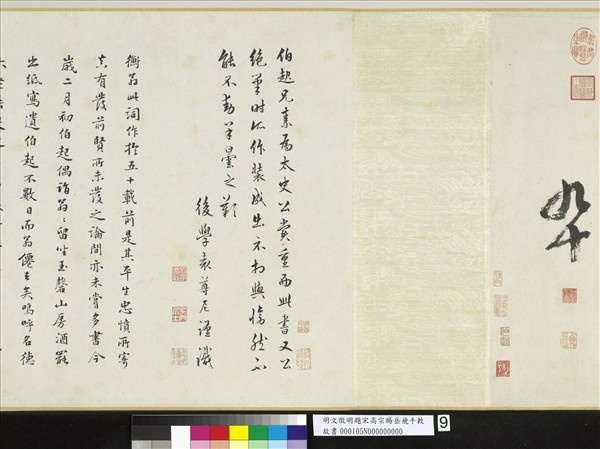 九十
伯起兄素為太史公賞重而此書又公
絕筆時所作裝成出示相與愴然不
能不動羊曇之歎
後學袁尊尼謹識
衡翁此詞作於五十載前是其平生忠憤所寄
真有發前賢所未發之論間亦未嘗多書今
歲二月初伯起偶詣翁翁留坐玉磬山房酒罷
出紙寫遺伯起不數日而翁僊去矣嗚呼名德
明文徵明題宋高宗賜岳飛手敕
故書 000105N000000000
9